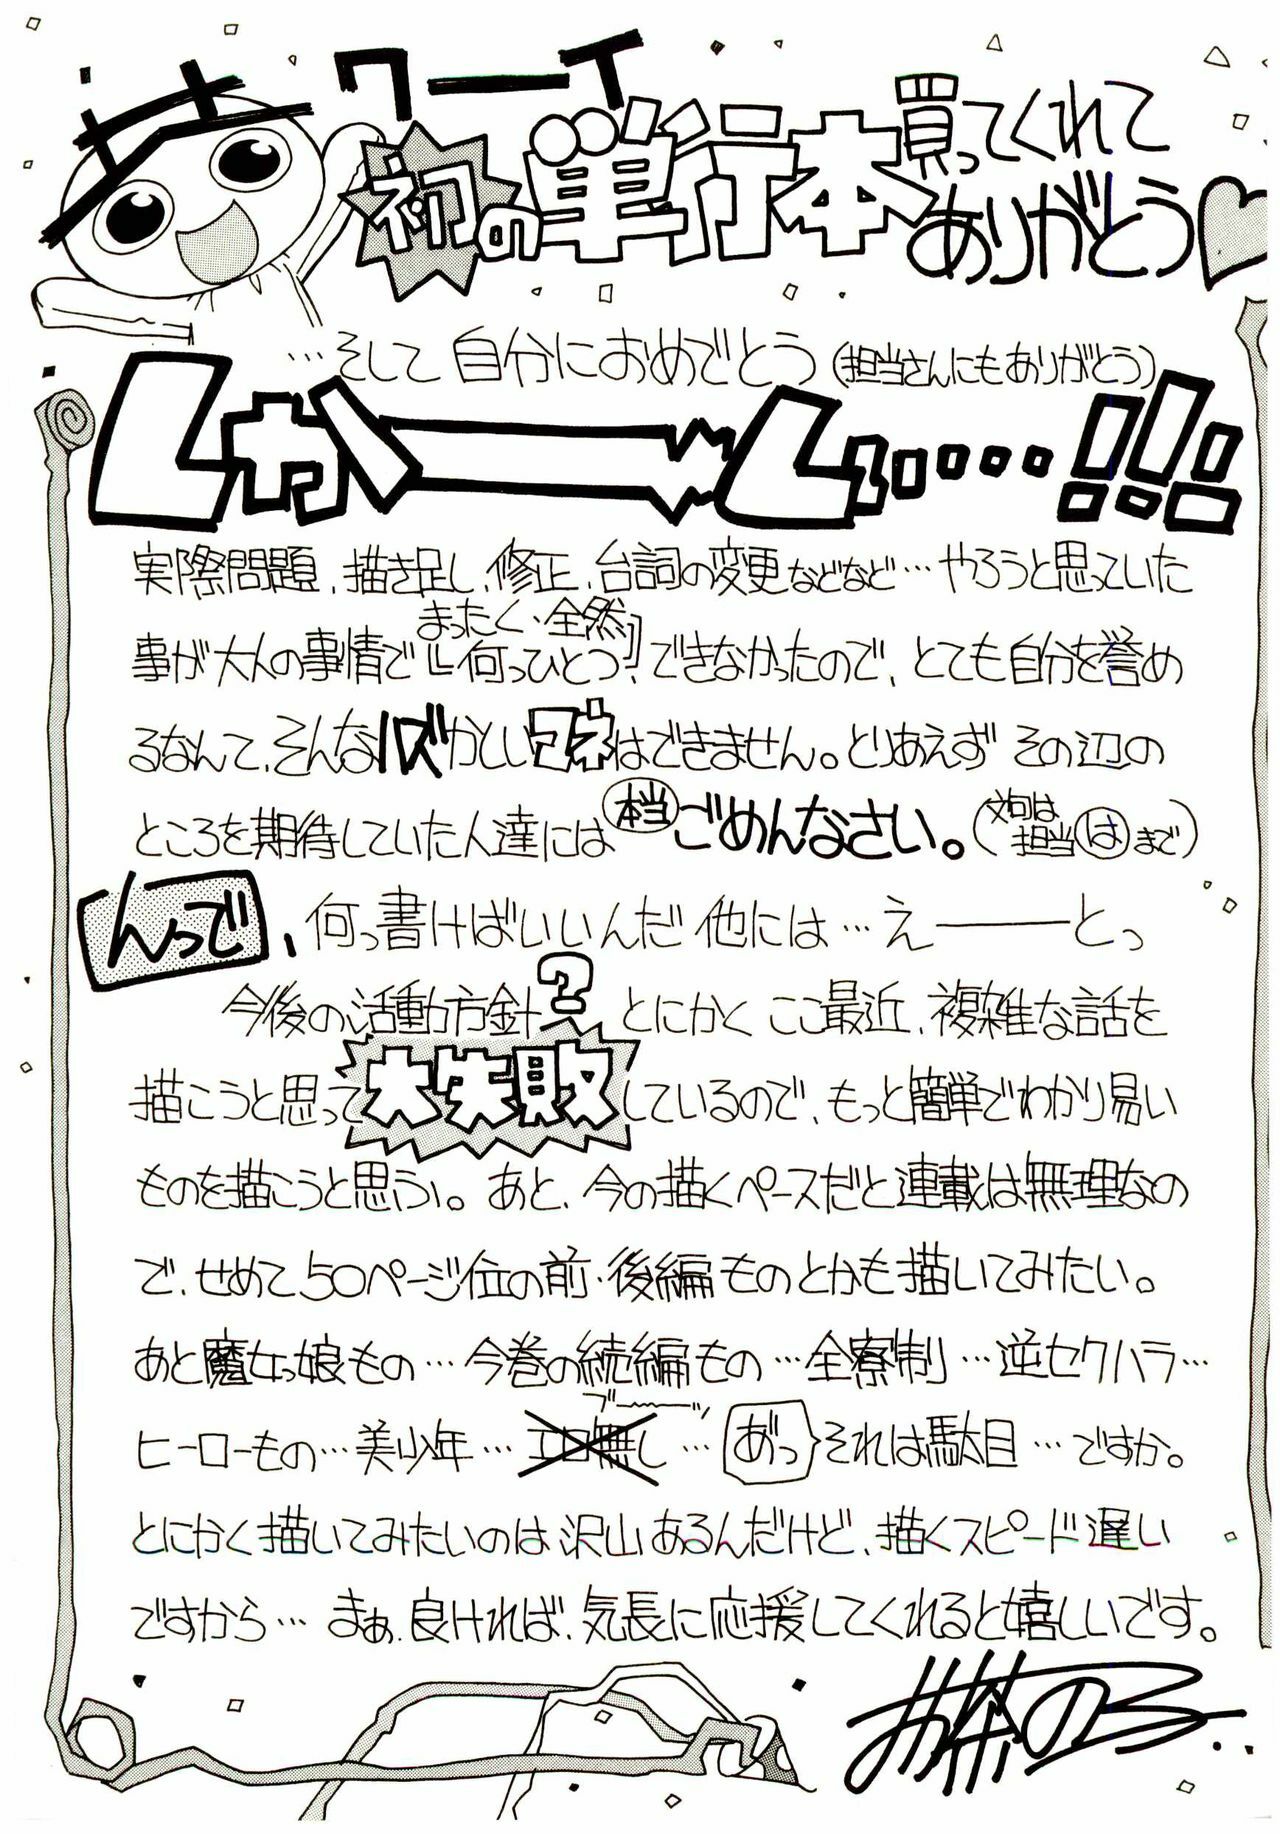 ワーイ
初の単行本買ってくれて
ありがとう♡
…そして自分におめでとう(担当さんにもありがとう)
しかーーしぃ‥‥‥!!!
実際問題、描き足し、修正、台詞の変更などなど…やろうと思っていた
まったく・全然
事が大人の事情で『何っひとつ』できなかったので、とても自分を誉め
るなんて、そんなハズかしいマネはできません。とりあえず その辺の
ところを期待していた人達には本当ごめんなさい。(文句は担当はまで)
んっで、何っ書けばいいんだ 他には…えーーーとっ
今後の活動方針? とにかく ここ最近、複雑な話を
描こうと思って大失敗しているので、もっと簡単でわかり易い
ものを描こうと思うっ。あと、今の描くペースだと連載は無理なの
で、せめて50ページ位の前・後編ものとかも描いてみたい。
あと魔女っ娘もの…今巻の続編もの…全寮制…逆セクハラ…
ブーーッ
ヒーローもの…美少年…エロ無し…あ゛っ それは駄目…ですか。
とにかく描いてみたいのは沢山あるんだけど、描くスピード遅い
ですから… まぁ、良ければ、気長に応援してくれると嬉しいです。